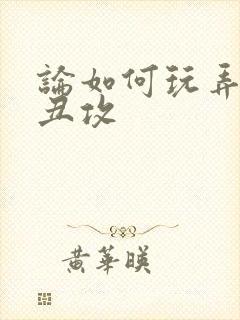 論如何玩弄
丑攻
黃華暎